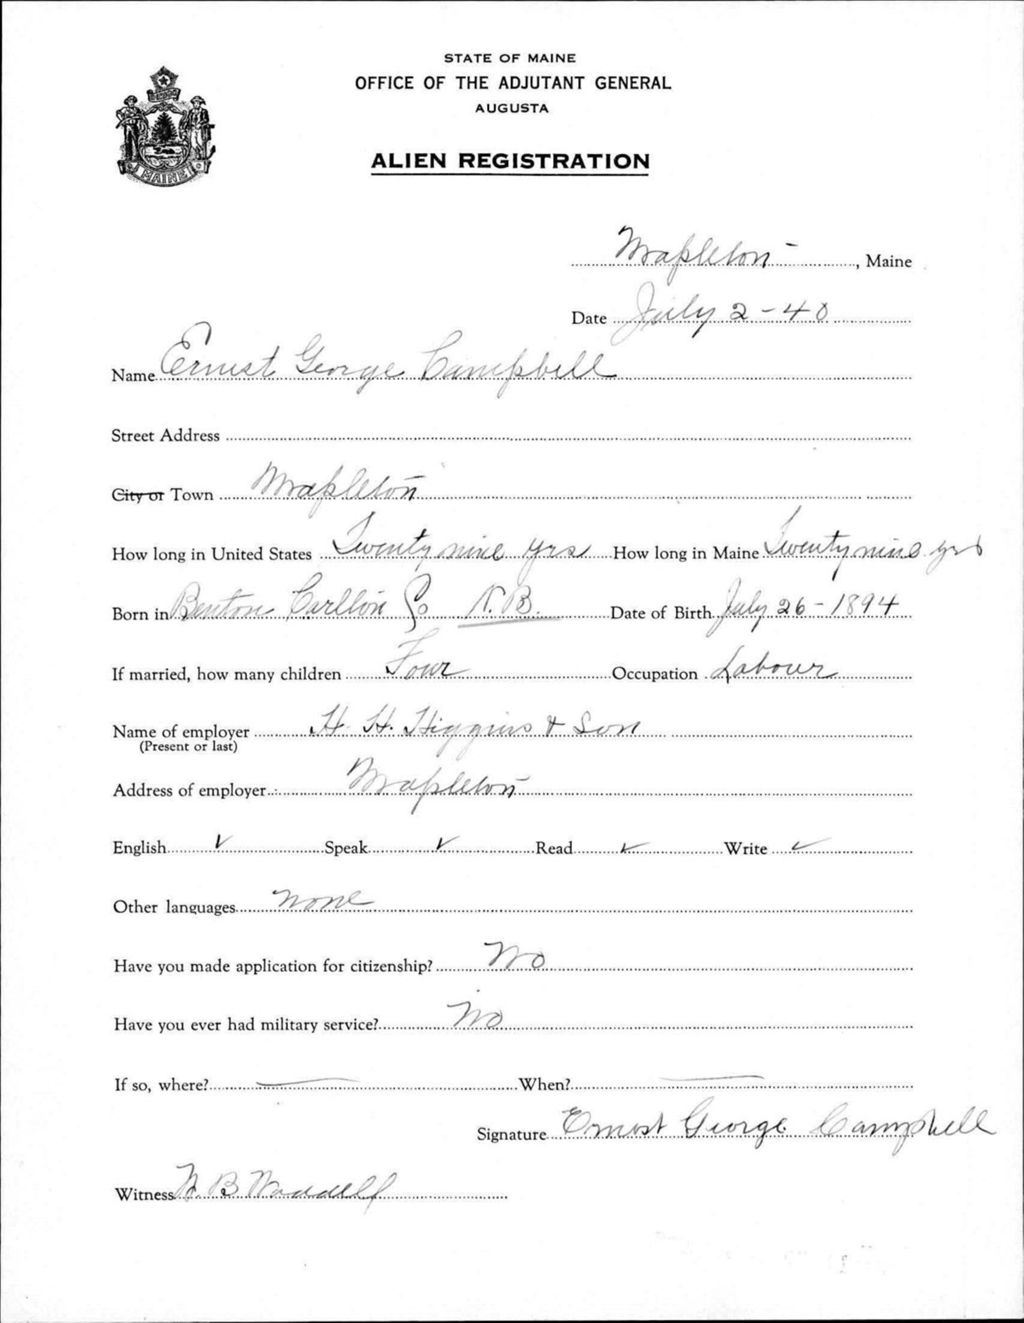 STATE OF MAINE
OFFICE OF THE ADJUTANT GENERAL
AUGUSTA
MAINE
ALIEN REGISTRATION
Mapleton - , Maine
Date July 2 - 40
Name Ernest George Campbell
Street Address
City or Town Mapleton
How long in United States Twenty nine yrs How long in Maine Twenty nine yrs
Born in Benton Carlton Co N.B. Date of Birth July 26 - 1894
If married, how many children Four Occupation Labour
Name of employer H. H. Higgins & Son
(Present or last)
Address of employer Mapleton
English ✓ Speak ✓ Read ✓ Write ✓
Other languages none
Have you made application for citizenship? No
Have you ever had military service? No
If so, where? — When? —
Signature Ernest George Campbell
Witness B Waddell